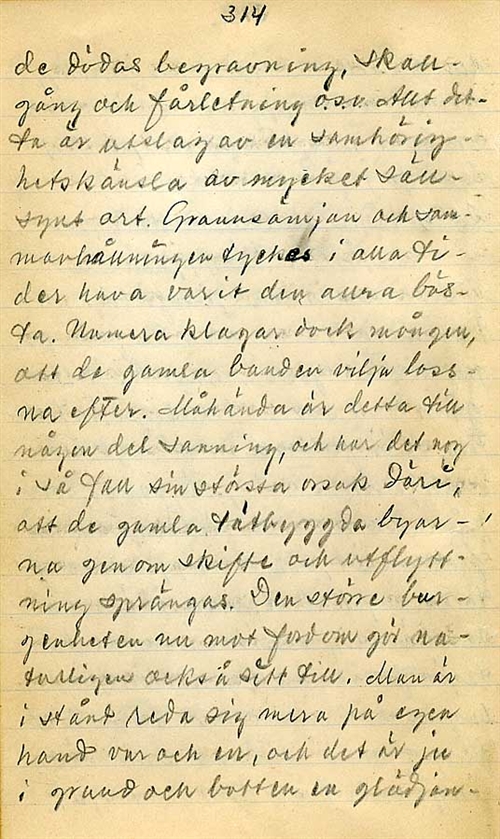 314
de dödas begravning, skall-
gång och fårletning o.s.v. Allt det-
ta är utslag av en samhörig-
hetskänsla av mycket säll-
synt art. Grannsämjan och sam-
manhållningen tyckes i alla ti-
der hava varit den allra bäs-
ta. Numera klagar dock mången,
att de gamla banden vilja loss-
na efter. Måhända är detta till
någon del sanning, och har det nog
i så fall sin största orsak däri,
att de gamla tätbyggda byar-
na genom skifte och utflytt-
ning sprängas. Den större bur-
genheten nu mot fordom gör na-
turligen också sitt till. Man är
i stånd reda sig mera på egen
hand var och en, och det är ju
i grund och botten en glädjan-